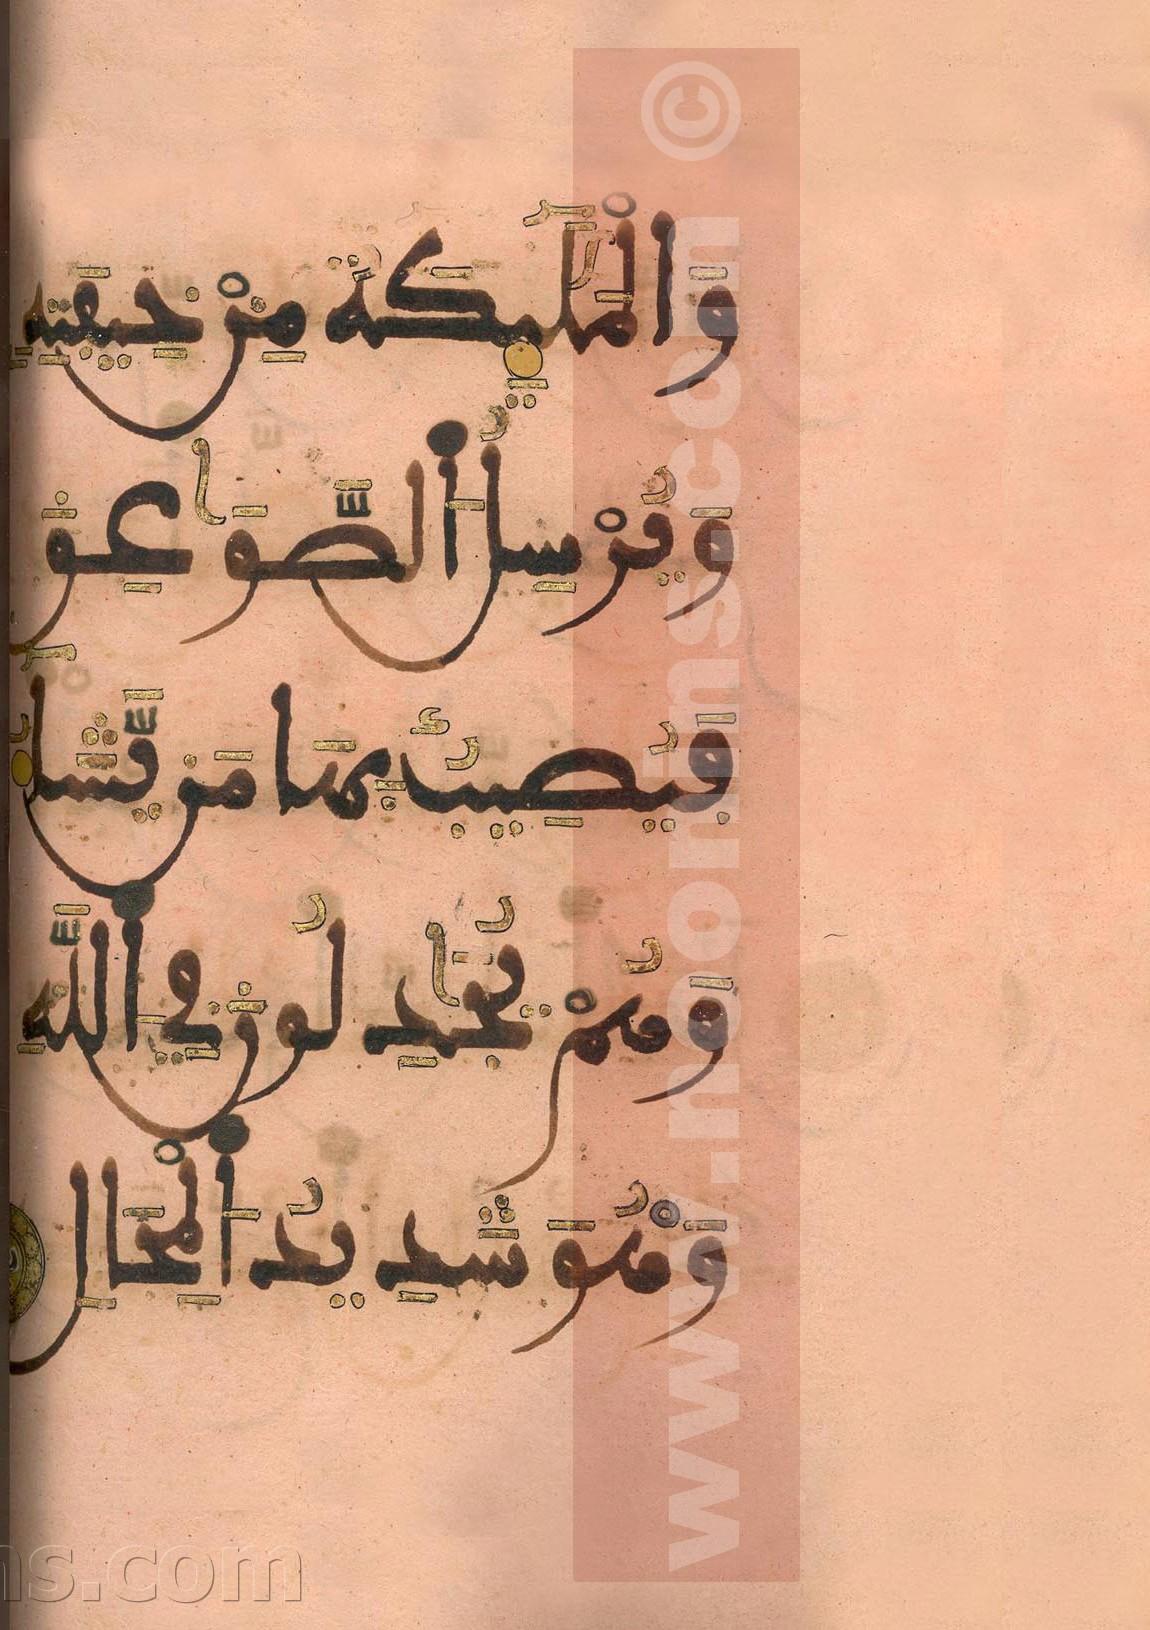 وَالْمَلَٰٓئِكَةُ مِنْ خِيفَتِهِ
وَيُرْسِلُ اَ۬لصَّوَٰعِقَ
فَيُصِيبُ بِهَا مَنْ يَّشَآءُ
وَهُمْ يُجَٰدِلُونَ فِي اِ۬للَّهِ
وَهْوَ شَدِيدُ اُ۬لْمِحَالِ
www.moonlines.com ©
ns.com